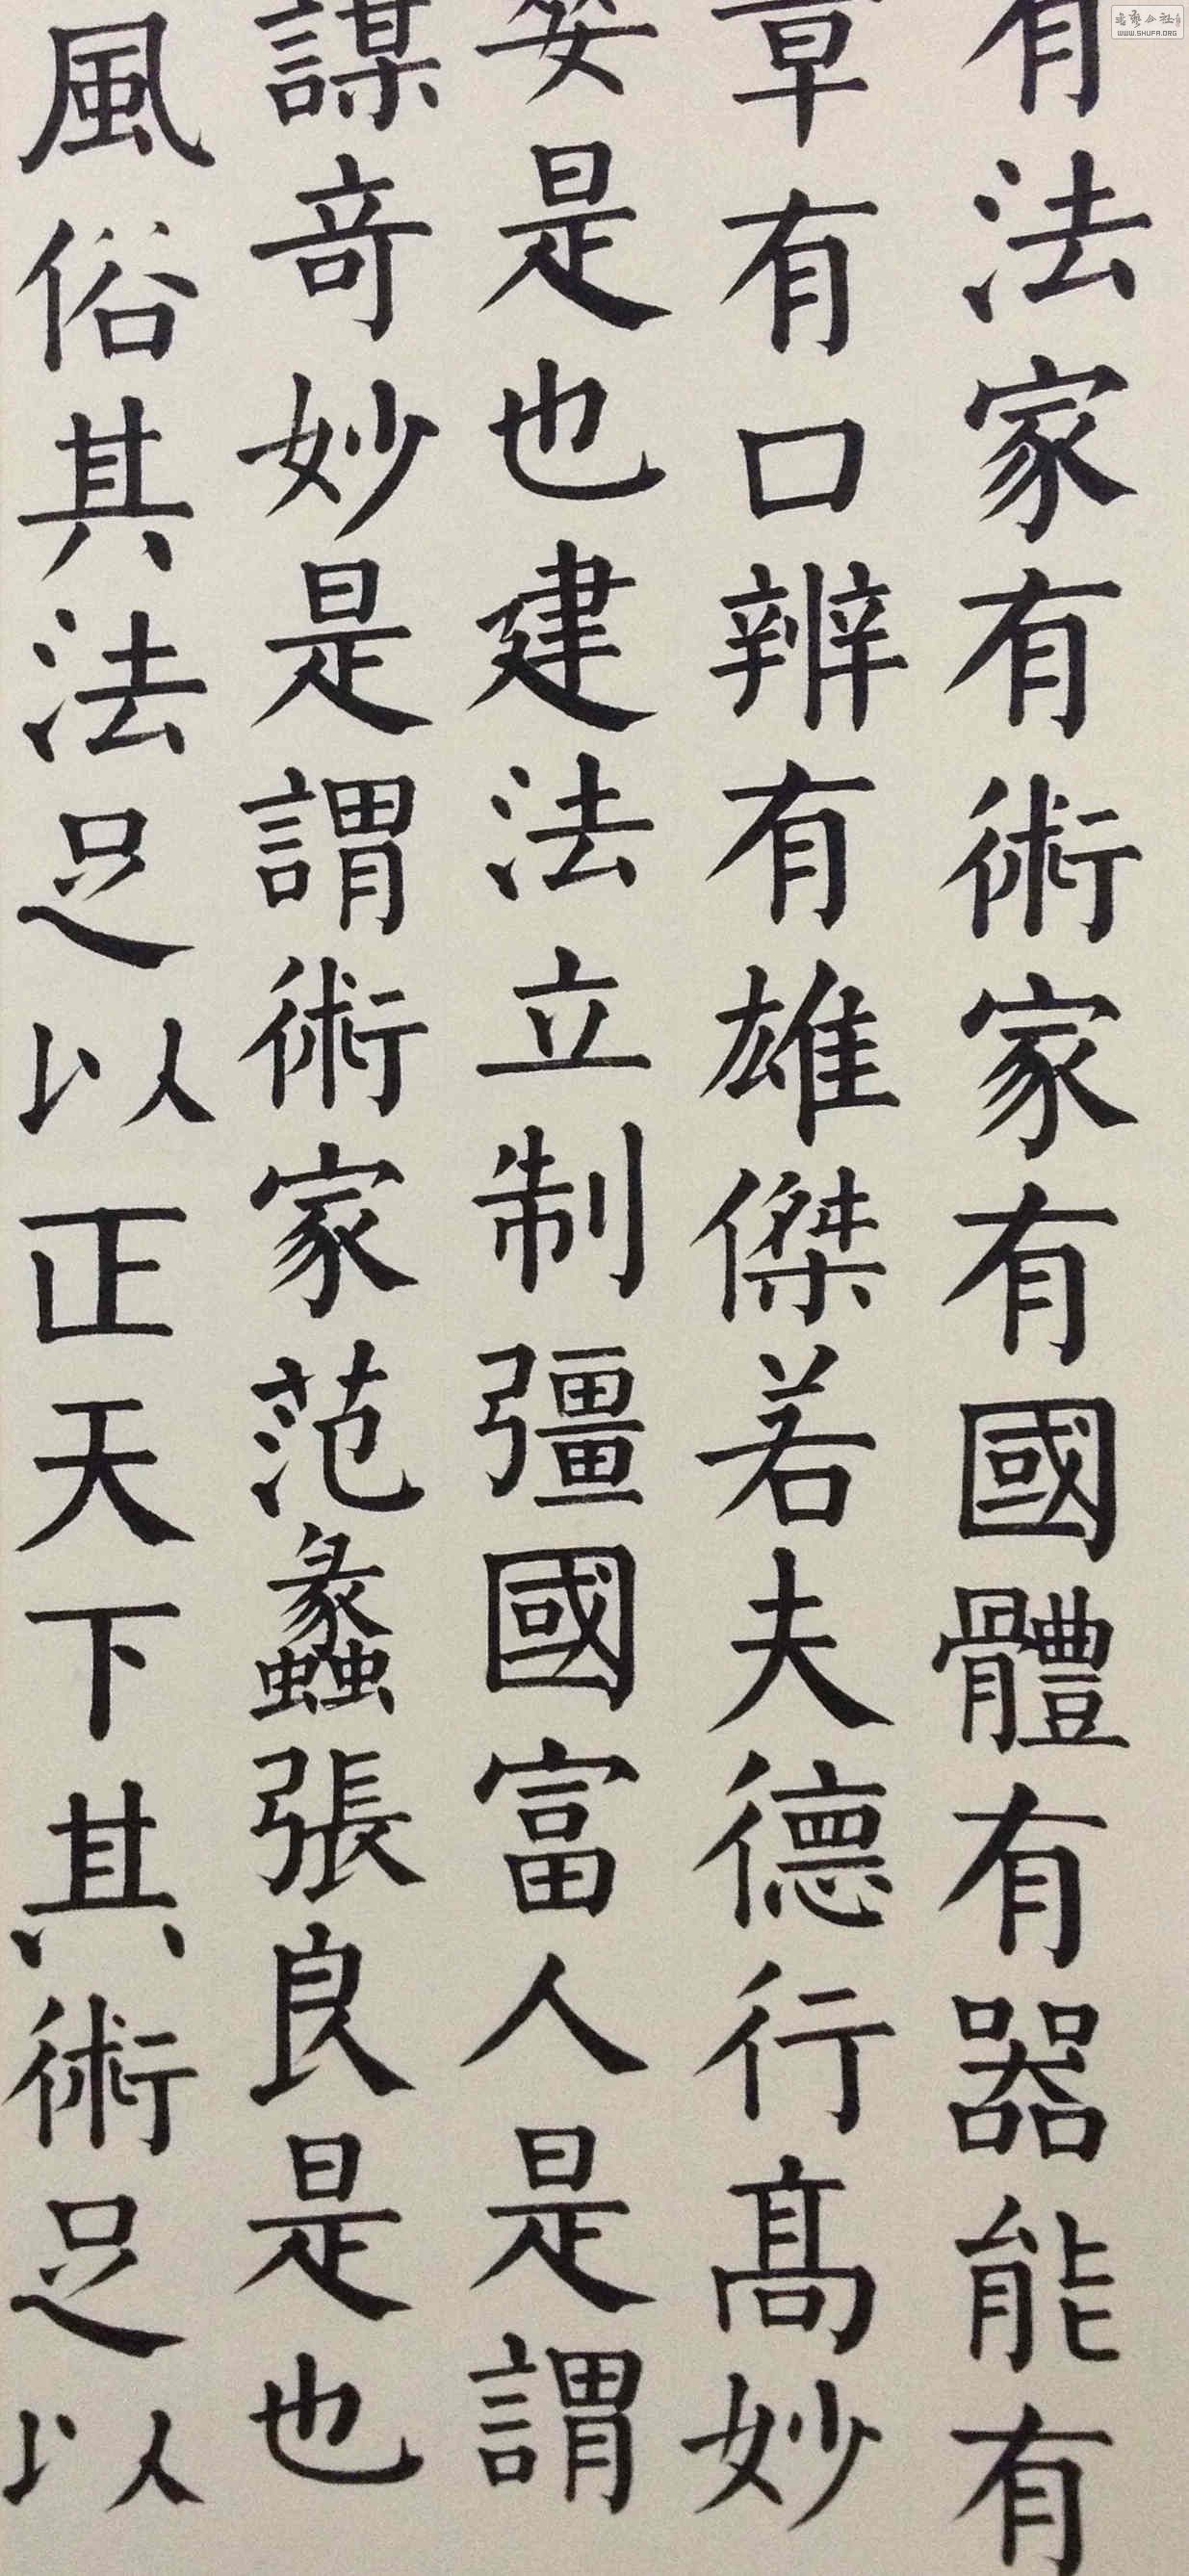 有法家有術家有國體有器能有
章有口辨有雄傑若夫德行髙妙
晏是也建法立制彊國富人是謂
謀竒妙是謂術家范蠡張良是也
風俗其法足以正天下其術足以
WWW.SHUFA.ORG